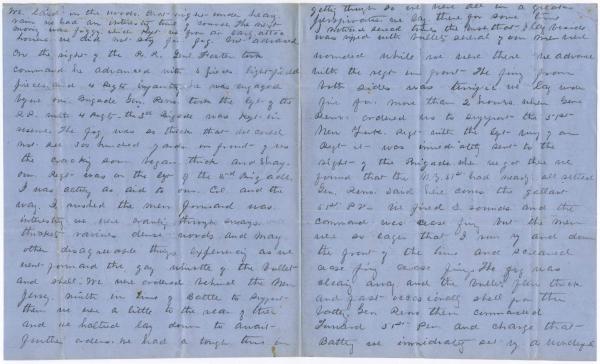 We laid in the woods that night under heavy
rain we had an interesting time of course. The next
morning was foggy which kept us from an early attack
however we did not stay for fog but advanced
On the right of the R.R. Genl Foster took
command he advanced with 6 pieces light field
pieces and 4 Regts Infantry he was engaged
by us our Brigade Gen. Reno took the left of the
R.R. with 4 Regts the 3rd Brigade was kept in
reserve. The fog was so thick that we could
not see 300 hundred yards in front of us
the cracking soon began thick and sharp
our Regt was on the left of the 2nd Brigade,
I was acting as aid to our Col. and the
way I rushed the men forward was
interesting we were wading through swamps
thickets ravines dense woods and many
other disagreeable things experiencing as we
went forward the gay whistle of the bullet
and shell. We were ordered behind the New
Jersey ninth in lines of Battle to support
them we were a little to the rear of their
and we halted lay down to await
further orders. We had a tough time in
getting through so we were all in a
we lay there for some time
I noticed several times the
was with bullets several of our men were
wounded while we were there we advance
with the regt in front. The firing from
both sides was terrific we lay under
fire for more than 2 hours when Gen
Reno ordered us to support the 51st
New York Regt with the left wing of our
Regt it was immediately sent to the
right of the Brigade when we got there we
found that the N.Y. 51st had nearly all retired
Gen. Reno said here comes the gallant
51st P.V. We fired 2 rounds and the
command was cease firing but the men
were so eager that I run up and down
the front of the line and screamed
cease firing cease firing. The fog was
clearing away and the bullets flew thick
and fast occasionally shell from the
battery Gen Reno then commanded
Forward 51st Pen and charge that
Battery we immediately set up a